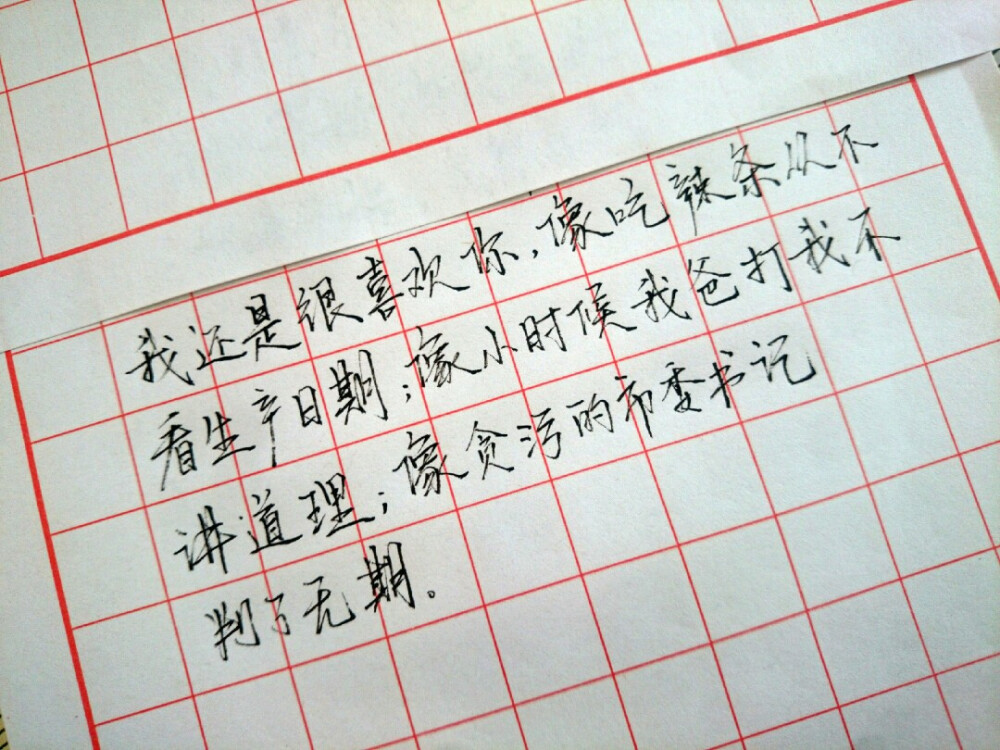 我还是很喜欢你，像吃辣条从不
看生产日期；像小时候我爸打我不
讲道理；像贪污的市委书记
判了无期。